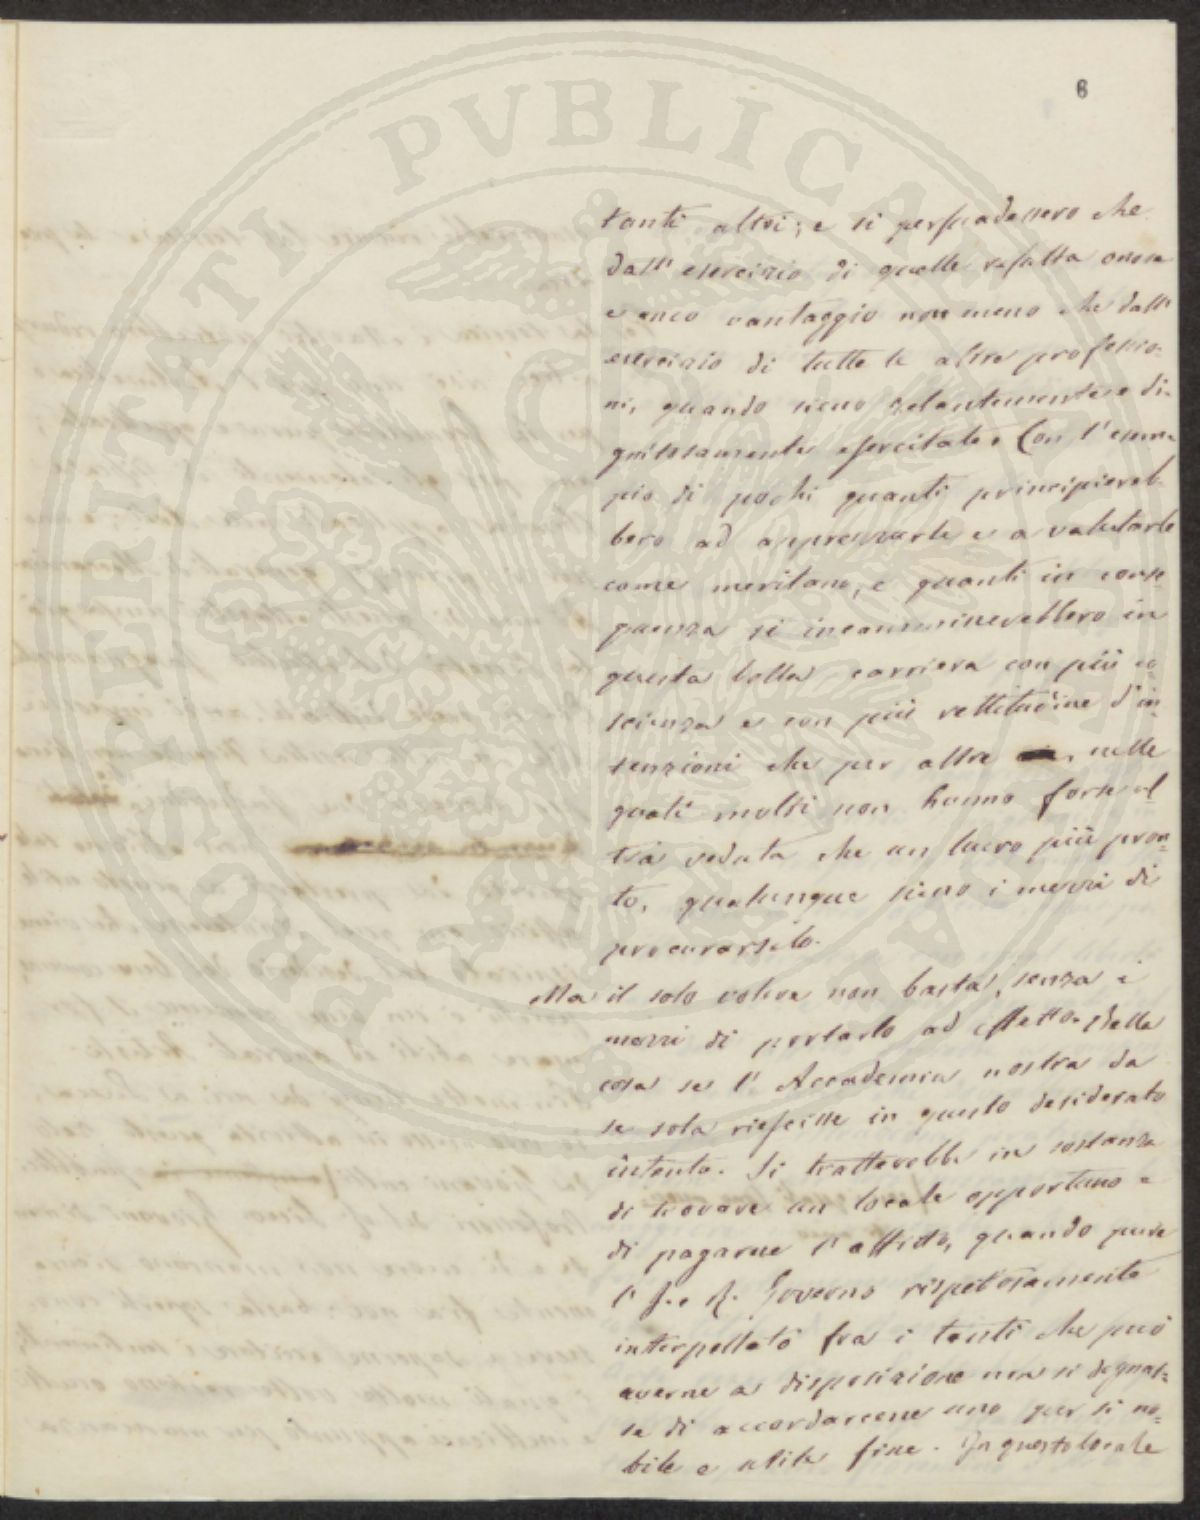 6
tanti altri; e si persuadessero che
dall'esercizio di quelle risulta onore
e anco vantaggio non meno che dall'
esercizio di tutte le altre professio-
ni, quando sieno zelantemente e di-
gnitosamente esercitate. Con l'esem-
pio di pochi quanti principiereb-
bero ad apprezzarle e a valutarle
come meritano, e quanti in conse-
guenza si incamminerebbero in
questa bella carriera con più co
scienza e con più rettitudine d'in-
tenzioni che per altre, nelle
quali molti non hanno forse al-
tra veduta che un lucro più pron-
to, qualunque sieno i mezzi di
procurarselo.
Ma il solo volere non basta, senza i
mezzi di portarlo ad effetto. Bella
cosa se l'Accademia nostra da
se sola riescisse in questo desiderato
intento. Si tratterebbe in sostanza
di trovare un locale opportuno e
di pagarne l'affitto, quando pure
l'I. e R. Governo rispettosamente
interpellato fra i tanti che può
averne a disposizione non si degnas-
se di accordarcene uno per si no-
bile e utile fine. In questo locale
PROSPERITATI PVBLICAE AVGENDAE